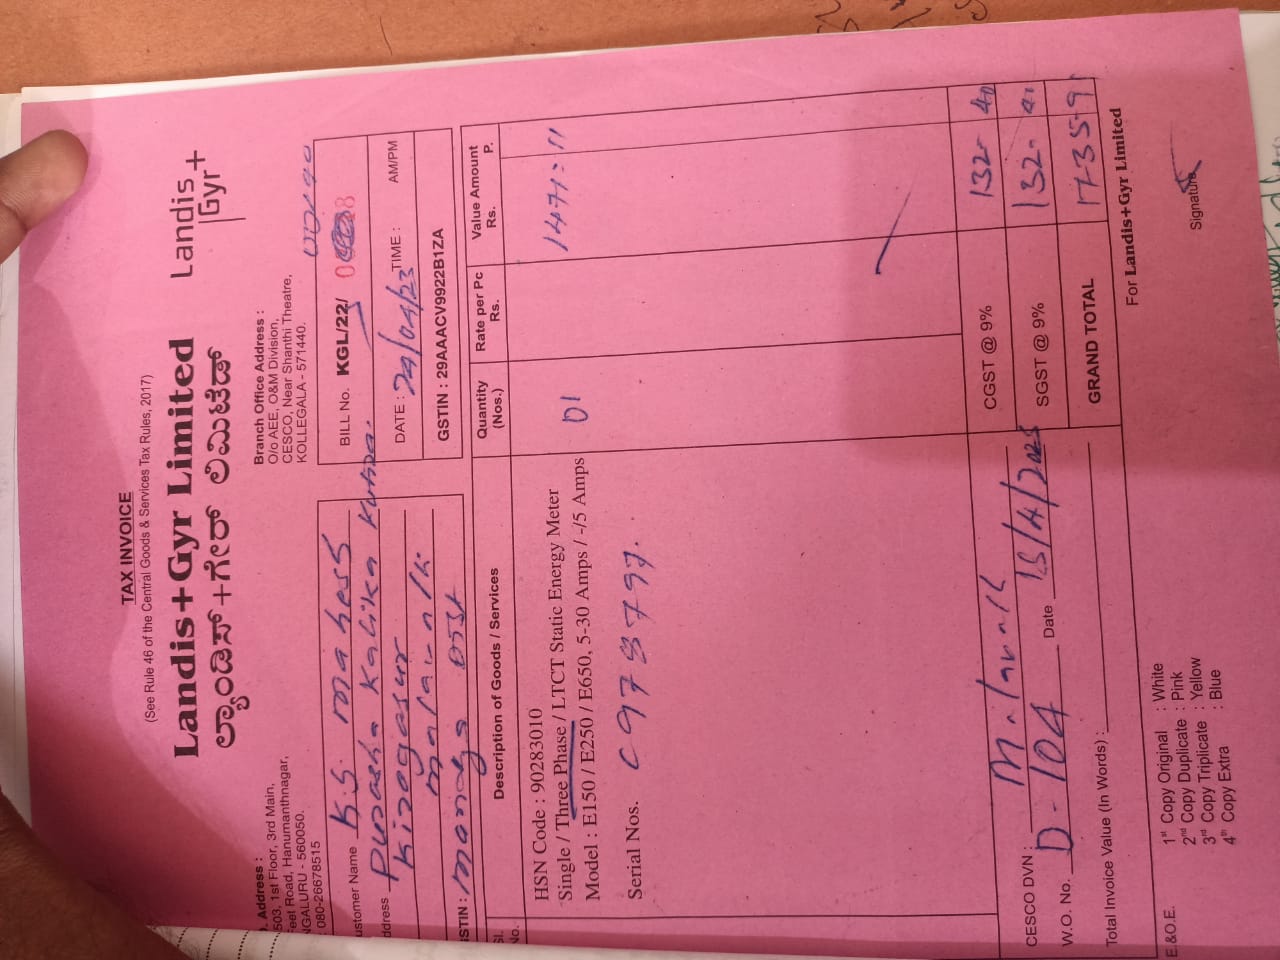 TAX INVOICE
(See Rule 46 of the Central Goods & Services Tax Rules, 2017)
Landis+Gyr Limited
ಲ್ಯಾಂಡಿಸ್+ಗೇರ್ ಲಿಮಿಟೆಡ್
Landis
Gyr+
Address :
503, 1st Floor, 3rd Main,
Feet Road, Hanumanthnagar,
NGALURU - 560050.
080-26678515
Branch Office Address :
O/o AEE, O&M Division,
CESCO, Near Shanthi Theatre,
KOLLEGALA - 571440.
ustomer Name K.S. Mahesh
ddress Purasha Kalika Kuhna.
Kirogasur
malavalli
GSTIN : mandya Dist
BILL No. KGL/22/
DATE : 24/04/23 TIME : AM/PM
GSTIN : 29AAACV9922B1ZA
Sl. No. Description of Goods / Services Quantity (Nos.) Rate per Pc Rs. Value Amount Rs. P.
HSN Code : 90283010
Single / Three Phase / LTCT Static Energy Meter
Model : E150 / E250 / E650, 5-30 Amps / -/5 Amps 01 1471=11
Serial Nos. C978797.
CESCO DVN : Malavalli CGST @ 9% 132- 40
W.O. No. D-104 Date 15/4/2023 SGST @ 9% 132- 40
Total Invoice Value (In Words) : GRAND TOTAL 1735-91
For Landis+Gyr Limited
Signature
E.&O.E.
1st Copy Original : White
2nd Copy Duplicate : Pink
3rd Copy Triplicate : Yellow
4th Copy Extra : Blue